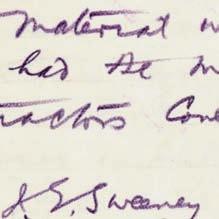 Material w
had the m
ractors Con
J. G. Sweeney